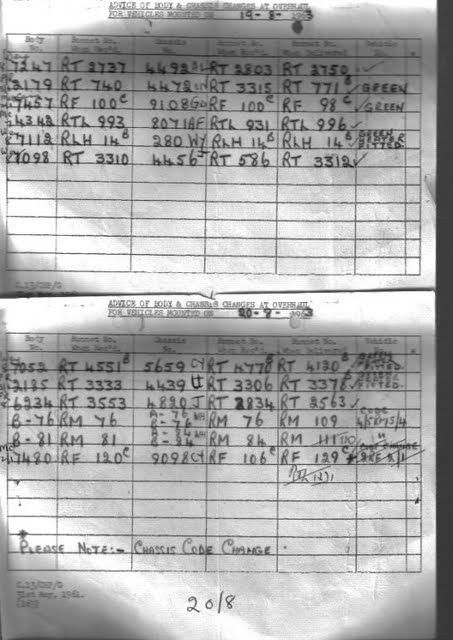 ADVICE OF BODY & CHASSIS CHANGES AT OVERHAUL
FOR VEHICLES MOUNTED ON 19-8-1963
Body No. Bonnet No. When Rec'd. Chassis No. Bonnet No. When Rec'd. Bonnet No. When Delivered Vehicle
7247 RT 2737 4492 RT 2803 RT 2750 ✓
2179 RT 740 4472 RT 3315 RT 771 B ✓ GREEN
7457 RF 100 C 9108 RF 100 C RF 98 C ✓ GREEN
4342 RTL 993 8071 RTL 931 RTL 996 ✓
7112 RLH 14 B 280 WY RLH 14 B RLH 14 B ✓ GREEN FITTED
7098 RT 3310 4456 RT 586 RT 3312 ✓
C.13/CHF/G
ADVICE OF BODY & CHASSIS CHANGES AT OVERHAUL
FOR VEHICLES MOUNTED ON 20-8-1963
Body No. Bonnet No. When Rec'd. Chassis No. Bonnet No. When Rec'd. Bonnet No. When Delivered Vehicle
7052 RT 4551 B 5659 CY RT 4770 B RT 4120 B ✓ FITTED
2185 RT 3333 4439 RT 3306 RT 3378 ✓ FITTED.
6234 RT 3553 4820 J RT 2834 RT 2563 ✓
B-76 RM 76 A-76 B-76 RM 76 RM 109 CODE 4/5RM5/4
B-81 RM 81 A-84 B-84 RM 84 RM 110 "
7480 RF 120 C 9098 CY RF 106 C RF 129 C
* PLEASE NOTE:- CHASSIS CODE CHANGE.
C.13/CHF/G
31st May, 1961.
20/8